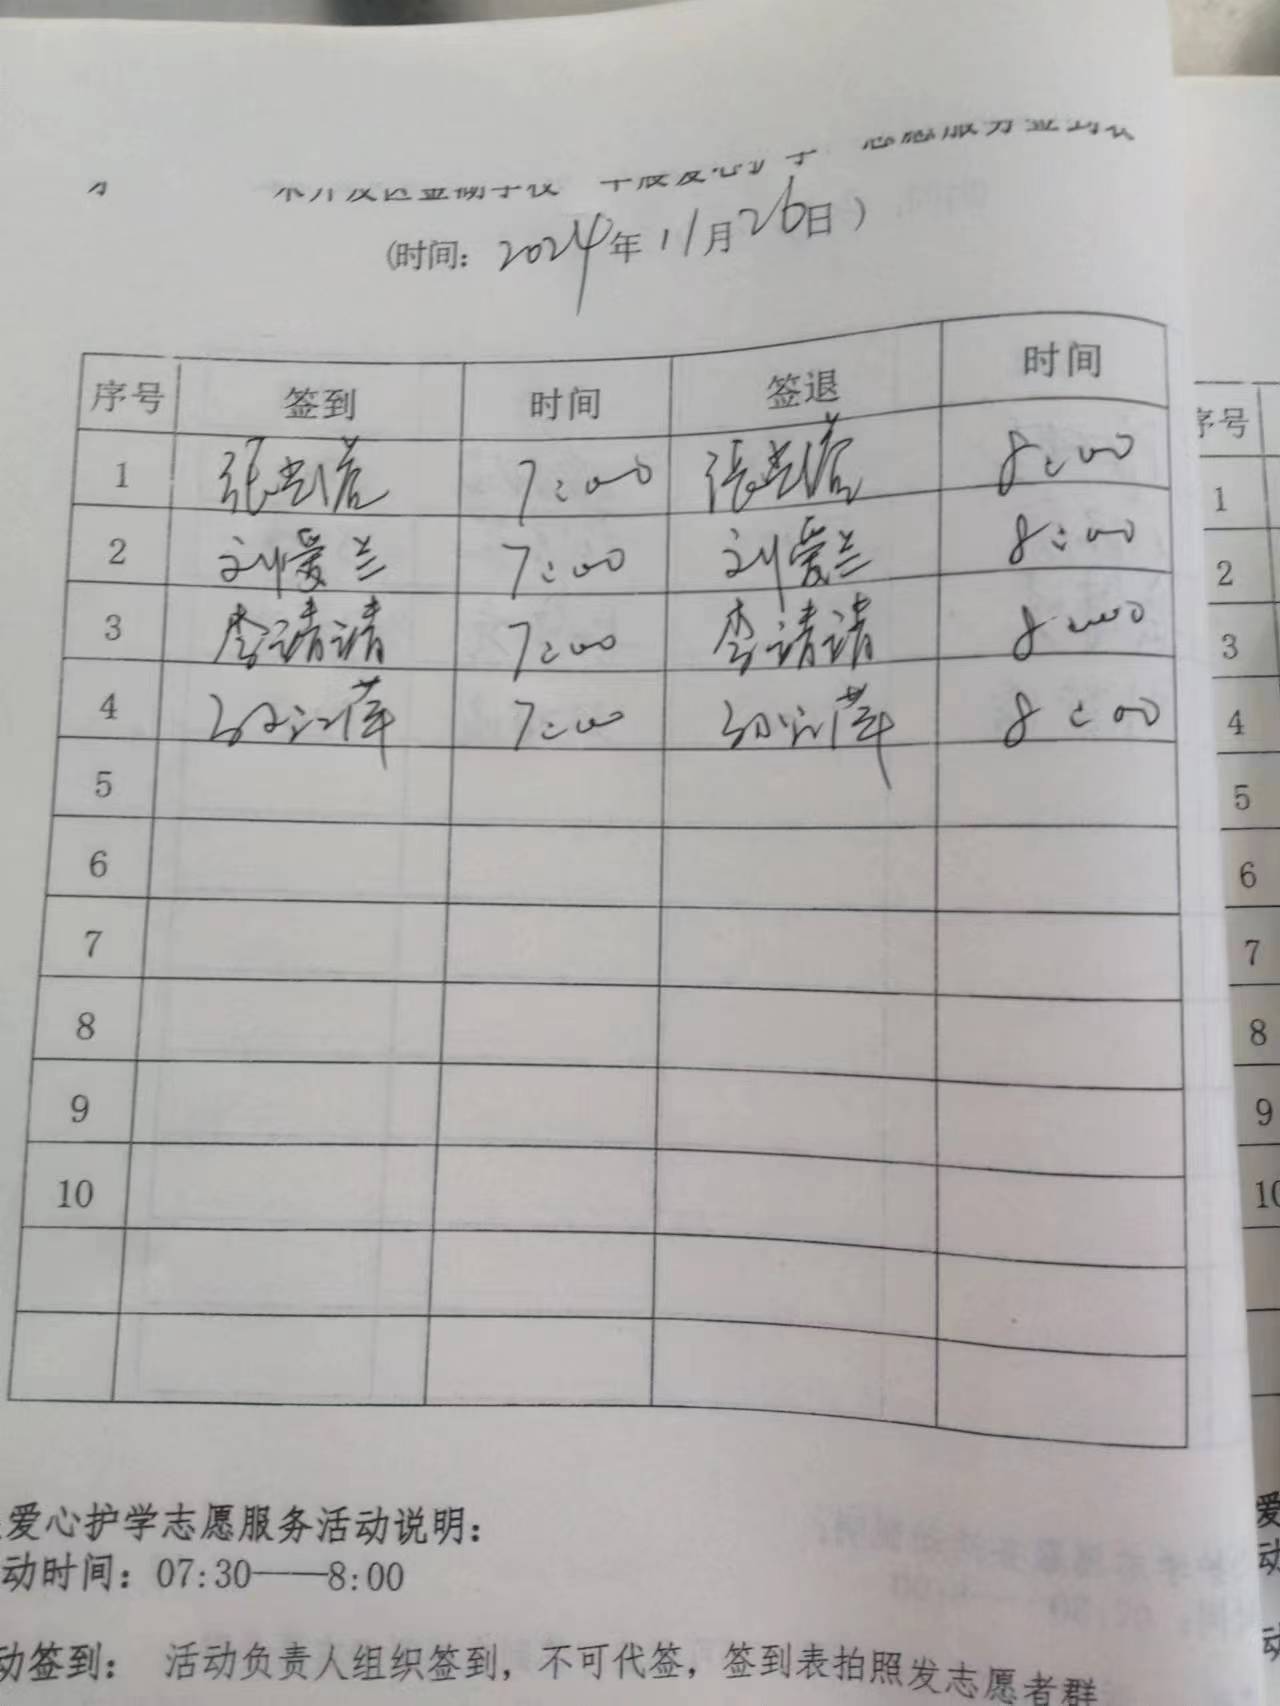 (时间: 2024年11月26日)
序号 签到 时间 签退 时间
1 7:00 8:00
2 刘爱兰 7:00 刘爱兰 8:00
3 李请请 7:00 李请请 8:00
4 7:00 8:00
5
6
7
8
9
10
爱心护学志愿服务活动说明:
动时间: 07:30——8:00
动签到: 活动负责人组织签到, 不可代签, 签到表拍照发志愿者群
序号
1
2
3
4
5
6
7
8
9
10
爱
动
动